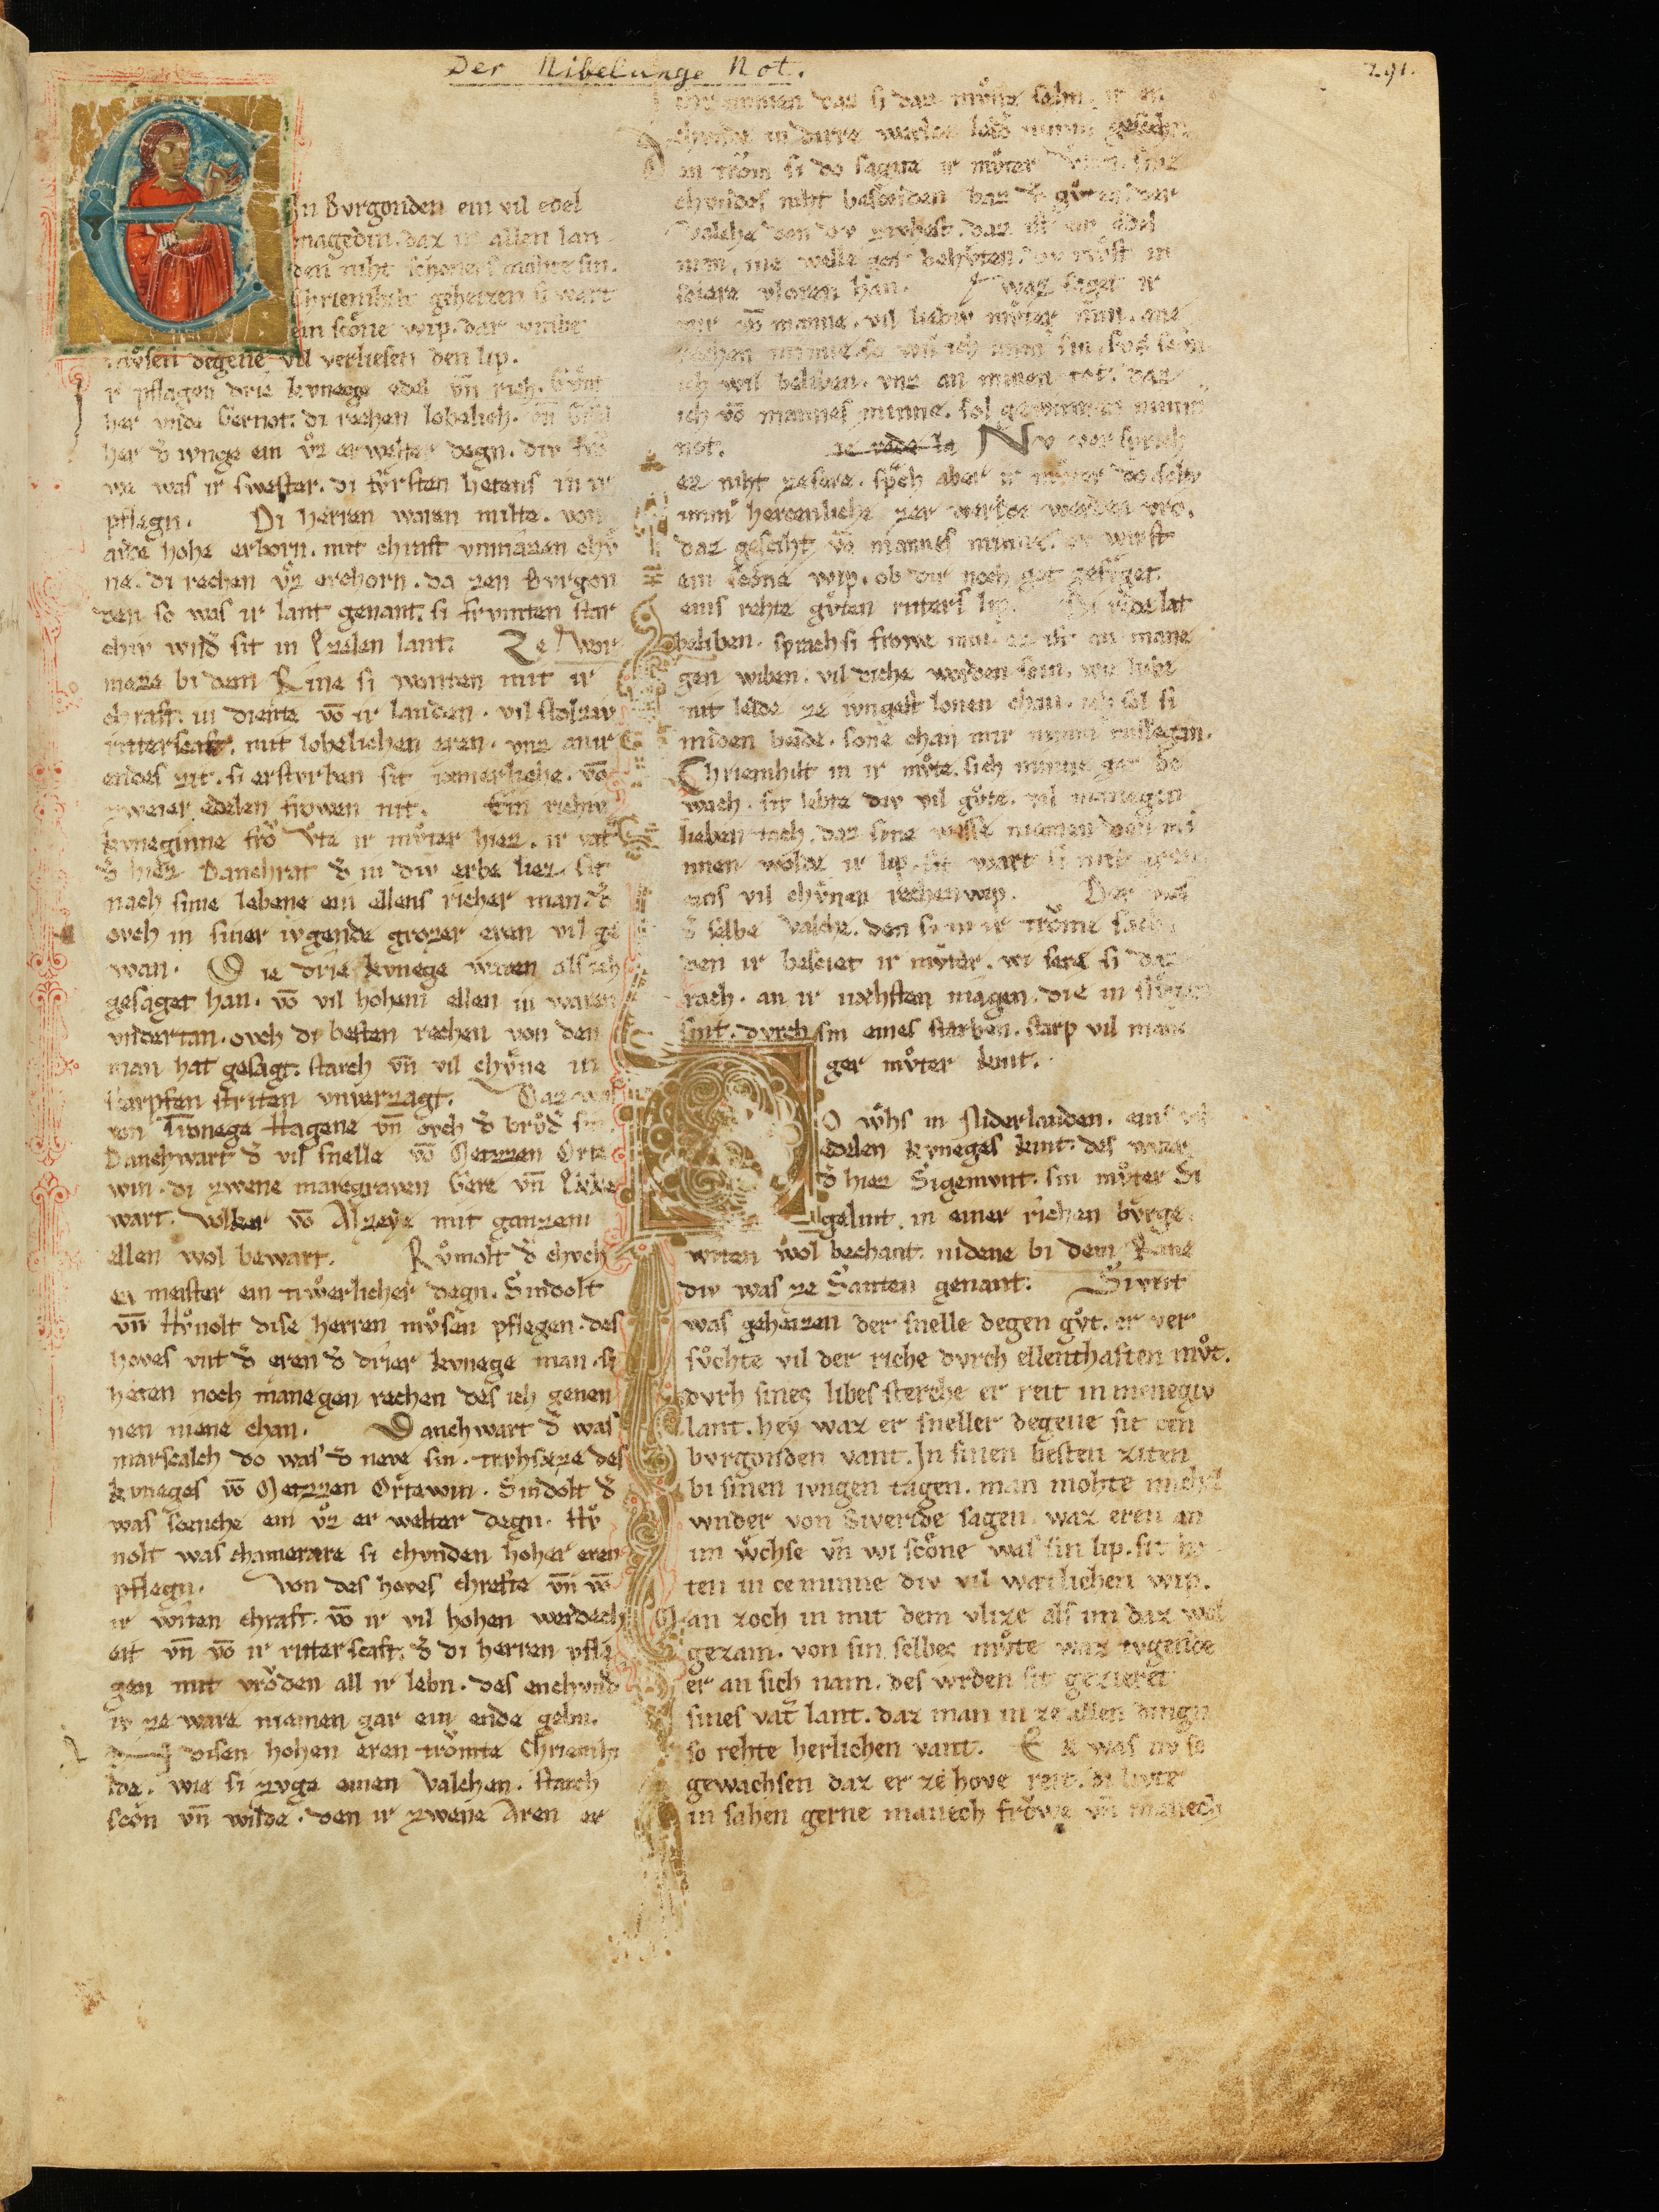 Der Nibelunge Not.
291.
In Bvrgonden ein vil edel
magedin. daz in allen lan
den niht schoners mohte sin.
Chriemhilt geheizen si wart
ein scone wip. dar vmbe
mvͦsen degene vil verliesen den lip.
ir pflagen drie kvnege edel vn̄ rich. Gvnt
her vnde Gernot. di rechen lobelich. vn̄ Gisel
her d̕ ivnge ein vͦz erwelter degn. div frō
we was ir swester. di fvrsten hetens in ir
pflegn. Di herren waren milte. von
arde hohe erborn. mit chraft vnmazen chv
ne. di rechen vͦz erchorn. da zen Bvrgon
den so was ir lant genant. si frvmten star
chiv wnd̕ sit in Ezelen lant. Ze Wor
meze bi dem Rine si wonten mit ir
chraft. in diente vō ir landen. vil stolziv
ritterscaft. mit lobelichen eren. vnz an ir
endes zit. si erstvrben sit iæmerliche. vō
zweier edelen frowen nit. Ein richiv
kvneginne frō Vte ir mvͦter hiez. ir vat
d̕ hiez Danchrat d̕ in div erbe liez. sit
nach sime lebene ein ellens richer man. d̕
ovch in siner ivgende grozer eren vil ge
wan. Die drie kvnege waren als ich
gesaget han. vō vil hohem ellen in waren
vndertan. ovch di besten rechen von den
man hat gesagt. starch vn̄ vil chvͤne in
scarpfen striten vnverzagt. Daz was
von Tronege Hagene vn̄ ovch d̕ brvͦd̕ sin
Danchwart d̕ vil snelle vō Metzzen Orte
win. di zwene marcgraven Gere vn̄ Ekke
wart. Volker vō Alzeye mit ganzem
ellen wol bewart. Rvͦmolt d̕ chvch
en meister ein tiwerlicher degn. Sindolt
vn̄ Hvͦnolt dise herren mvͦsen pflegen. des
hoves vnt d̕ eren d̕ drier kvnege man. si
heten noch manegen rechen des ich genen
nen niene chan. Danchwart d̕ was
marscalch do was d̕ neve sin. trvhsæze des
kvneges vō Metzzen Ortewin. Sindolt d̕
was scenche ein vͦz er welter degn. Hvͦ
nolt was chamerære si chvnden hoher eren
pflegn. Von des hoves chrefte vn̄ vō
ir witen chraft. vō ir vil hohen werdech
eit vn̄ vō ir ritterscaft. d̕ di herren pfla
gen mit vrōden all ir lebn. des enchvnd
iv ze ware niemen gar ein ende gebn.
disen hohen eren trōmte Chriemhi
lde. wie si zvge einen valchen. starch
scōn vn̄ wilde. den ir zwene Aren er
chrimmen daz si daz mvͦse sehn. ir en
chvnde in dirre werlde leid̕ nimm̕ geschehn
en trōm si do sagete ir mvͦter Vten. sine
chvndes niht bescheiden baz d̕ gvͦten. der
valche den dv zivhest. daz ist ein edel
man. ine welle got behvͤten. dv mvͦst in
sciere vloren han. Waz saget ir
mir vō manne. vil liebiv mvͦter min. ane
rechen minne. so wil ich imm̕ sin. svs scōn
ich wil beliben. vnz an minen tot. daz
ich vō mannes minne. sol gewinnen nimm̕
not. Nv versprich
ez niht ze sere. sp̄ch aber ir mvͦter do. soltv
imm̕ hercenliche zer werlde werden vro.
daz gesciht vō mannes minne. dv wirst
ein scōne wip. ob dir noch got gefvget
eins rehte gvͦten riters lip. Di rede lat
beliben. sprach si frowe min. ez ist an mane
gen wiben. vil diche worden scin. wie liebe
mit leide ze ivngest lonen chan. ich sol si
miden beide. sone chan mir nimm̕ missegan.
Chriemhilt in ir mvͦte. sich minne gar be
wach. sit lebte div vil gvͦte. vil manegen
lieben tach. daz sine wesse niemen den mi
nnen wolde ir lip. sit wart si mit eren
eins vil chvͤnen rechen wip. Der was
d̕ selbe valche. den si in ir trōme sach
den ir besciet ir mvͦter. wi sere si daz
rach. an ir næhsten magen. die in slvͦgen
sint. dvrch sin eines sterben. starp vil mane
ger mvͦter kint.
Do wͦhs in Niderlanden. eins vil
edelen kvneges kint. des vater
d̕ hiez Sigemvnt. sin mvͦter Si
gelint. in einer richen bvrge.
witen wol bechant. nidene bi dem Rine
div was ze Santen genant. Sivrit
was geheizen der snelle degen gvͦt. er ver
svͦchte vil der riche dvrch ellenthaften mvͦt.
dvrh sines libes sterche er reit in menegiv
lant. hey waz er sneller degene sit cen
bvrgonden vant. In sinen besten ziten
bi sinen ivngen tagen. man mohte michil
wnder von Sivride sagen. waz eren an
im wͦchse vn̄ wi scōne was sin lip. sit he
ten in ce minne div vil wætlichen wip.
Man zoch in mit dem vlize als im daz wol
gezam. von sin selbes mvͦte waz tvgende
er an sich nam. des wrden sit gezieret
sines vat̕ lant. daz man in ze allen dingn
so rehte herlichen vant. Er was nv so
gewachsen daz er ze hove reit. di livte
in sahen gerne manech frōwe vn̄ manech